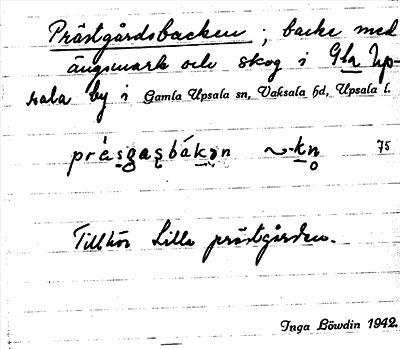 Prästgårdsbacken ; backe med
ängsmark och skog i Gla Up-
sala by i Gamla Upsala sn, Vaksala hd, Upsala l.
pràsgasbákən ~-kn̥ 75
Tillhör Lilla prästgården.
Inga Löwdin 1942.